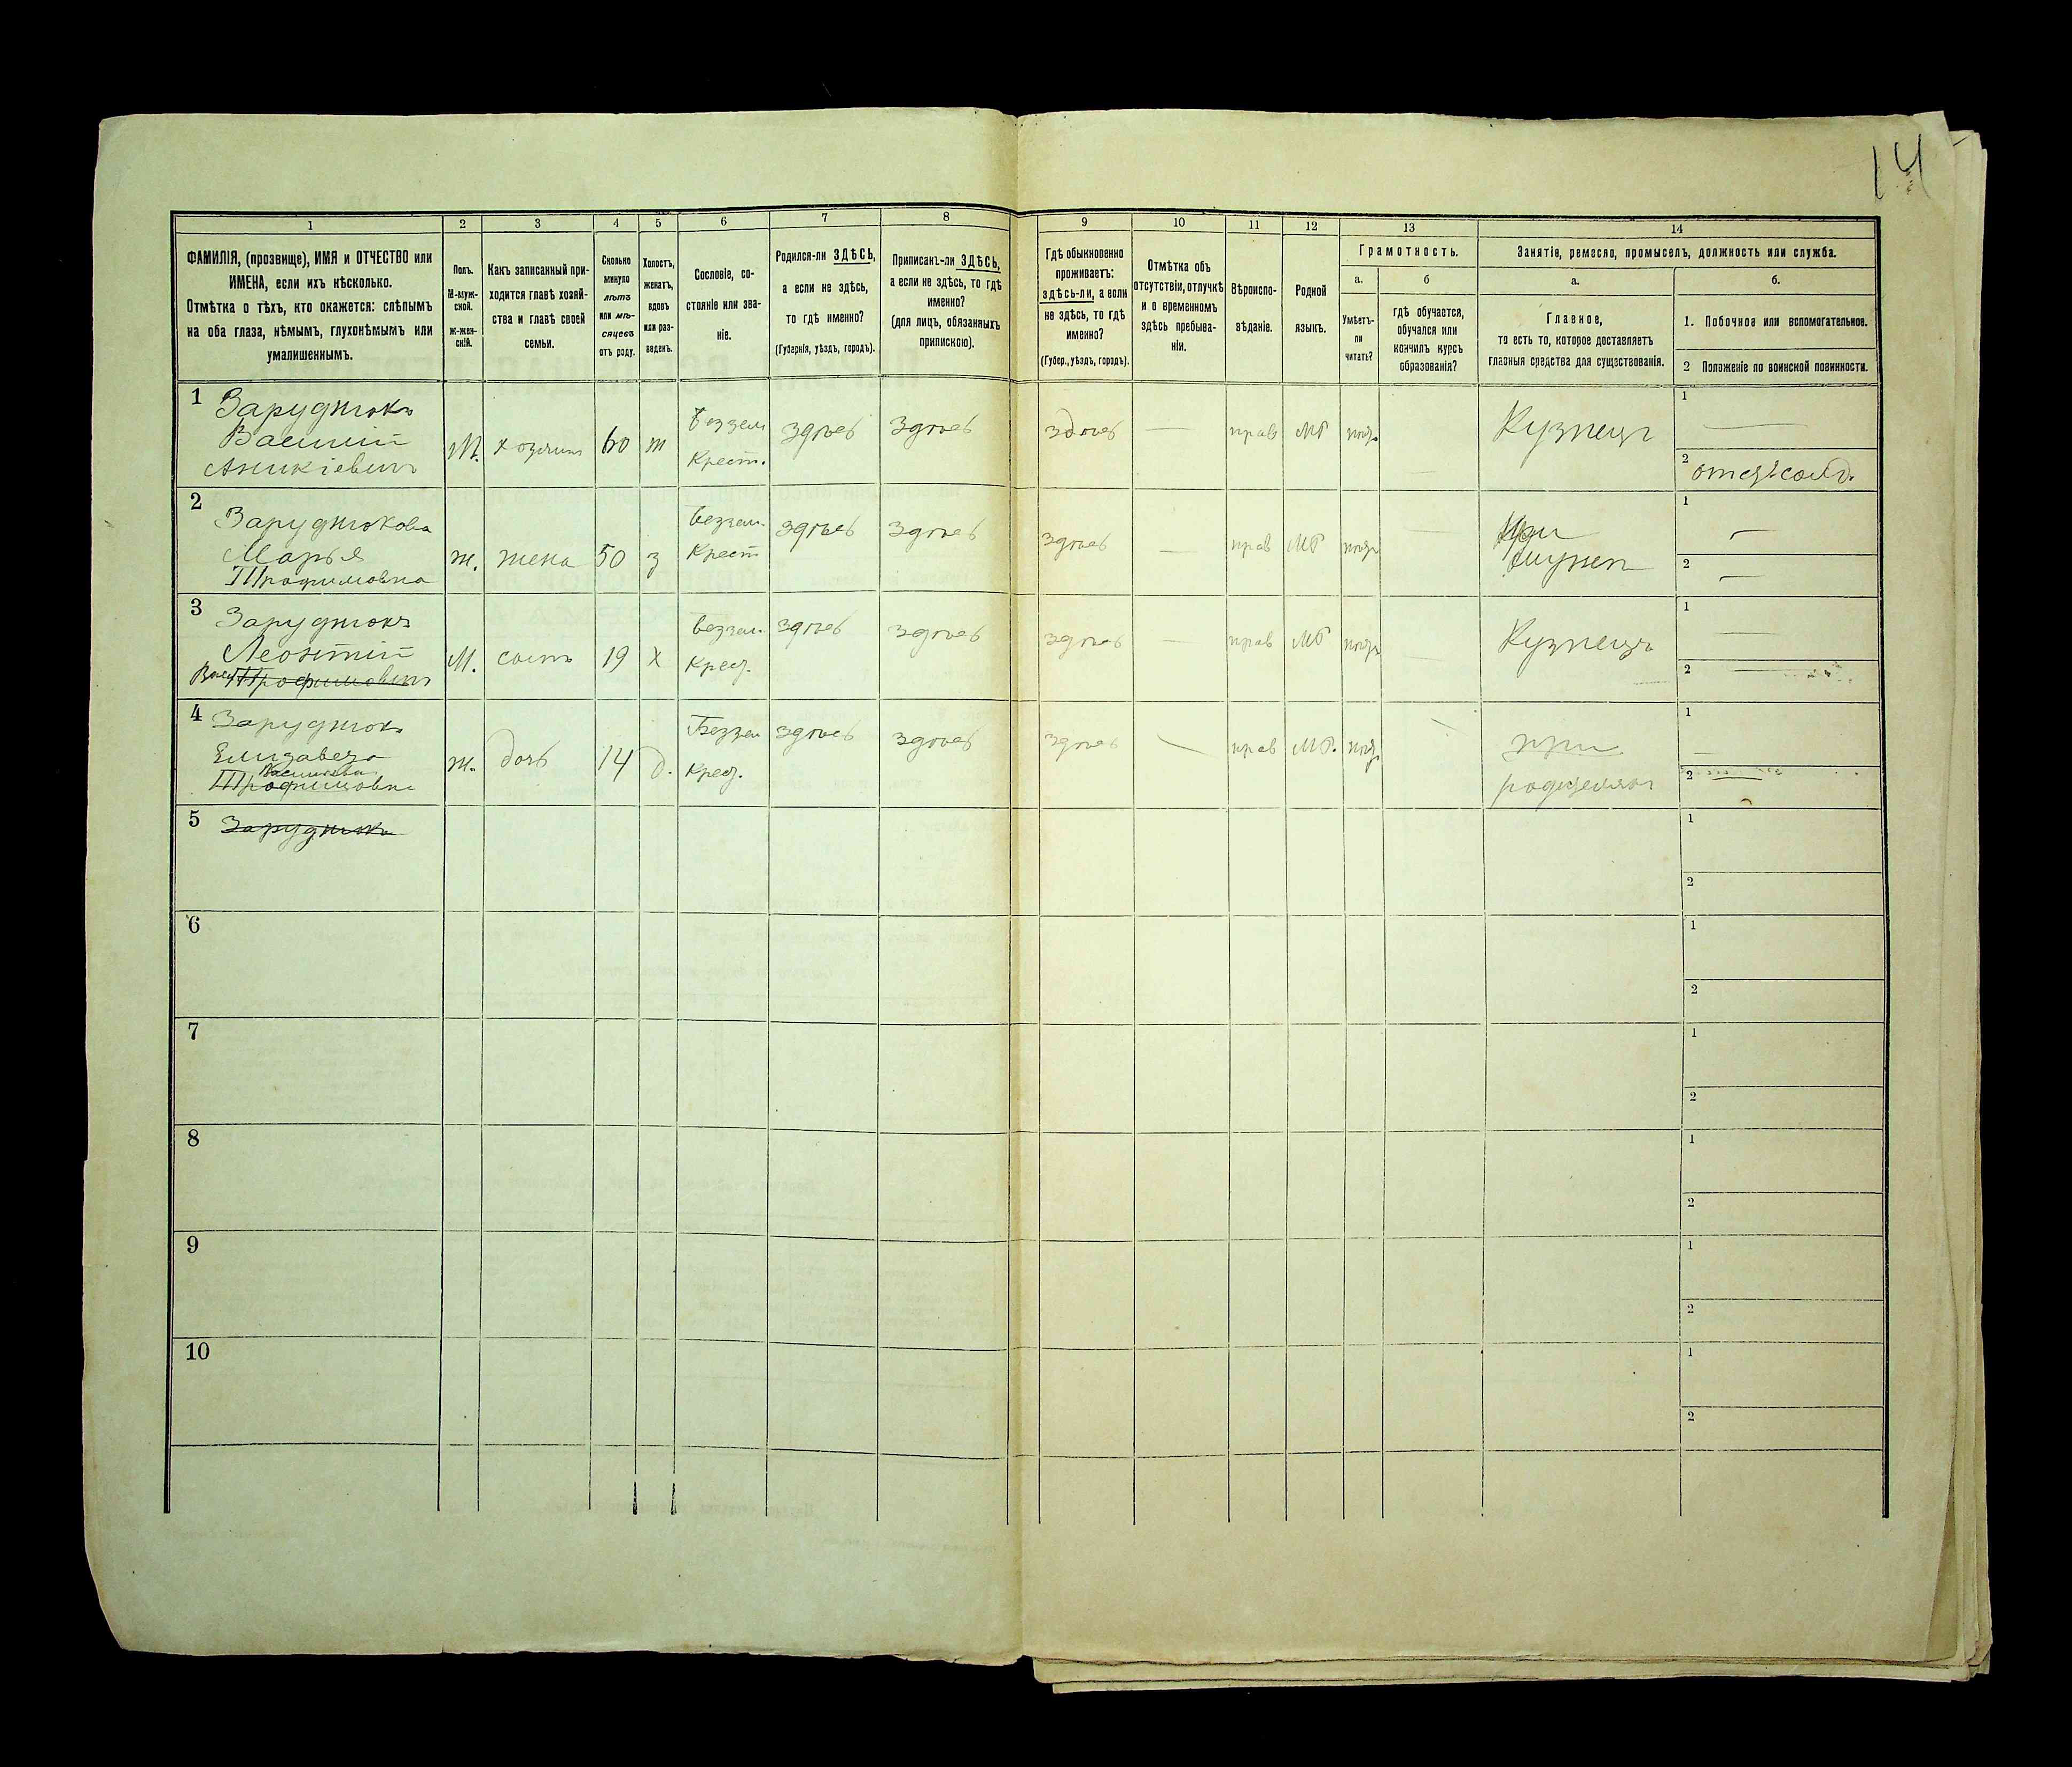 14
1
2
3
4
5
6
7
8
9
10
11
12
13
14
ФАМИЛІЯ, (прозвище), ИМЯ и ОТЧЕСТВО или
ИМЕНА, если ихъ нѣсколько.
Отмѣтка о тѣхъ, кто окажется: слѣпымъ
на оба глаза, нѣмымъ, глухонѣмымъ или
умалишеннымъ.
Полъ.
М-муж-
ской.
Ж-жен-
скій.
Какъ записанный при-
ходится главѣ хозяй-
ства и главѣ своей
семьи.
Сколько
минуло
лѣтъ
или мѣ-
сяцевъ
отъ роду.
Холостъ,
женатъ,
вдовъ
или раз-
веденъ.
Сословіе, со-
стояніе или зва-
ніе.
Родился-ли ЗДѢСЬ,
а если не здѣсь,
то гдѣ именно?
(Губернія, уѣздъ, городъ).
Приписанъ-ли ЗДѢСЬ,
а если не здѣсь, то гдѣ
именно?
(для лицъ, обязанныхъ
припискою).
Гдѣ обыкновенно
проживаетъ:
здѣсь-ли, а если
не здѣсь, то гдѣ
именно?
(Губер., уѣздъ, городъ).
Отмѣтка объ
отсутствіи, отлучкѣ
и о временномъ
здѣсь пребыва-
ніи.
Вѣроиспо-
вѣданіе.
Родной
языкъ.
Грамотность.
а.
Умѣетъ-
ли
читать?
б
гдѣ обучается,
обучался или
кончилъ курсъ
образованія?
Занятіе, ремесло, промыселъ, должность или служба.
а.
Главное,
то есть то, которое доставляетъ
главныя средства для существованія.
б.
1. Побочное или вспомогательное.
2 Положеніе по воинской повинности.
1
Заруднюкъ
Василій
Аникіевичъ
М.
хозяинъ
60
ж
Беззем
Крест.
здѣсь
здѣсь
здѣсь
—
прав
МР
Кузнецъ
1
—
2
2
Заруднюкова
Марья
Трофимовна
ж.
жена
50
з
беззем.
Крест
здѣсь
здѣсь
здѣсь
—
прав
МР
при
мужѣ
1
—
2
—
3
Заруднюкъ
Леонтій
Вас Трофимовичъ
М.
сынъ
19
х
беззем.
Крест.
здѣсь
здѣсь
здѣсь
—
прав
МР
Кузнецъ
1
—
2
—
4
Заруднюкъ
Елизавета
Васильева
Трофимовна
ж.
дочь
14
д.
Беззем
Крест.
здѣсь
здѣсь
здѣсь
—
прав
МР.
при
родителяхъ
1
—
2
—
5
Заруднюкъ
1
2
6
1
2
7
1
2
8
1
2
9
1
2
10
1
2